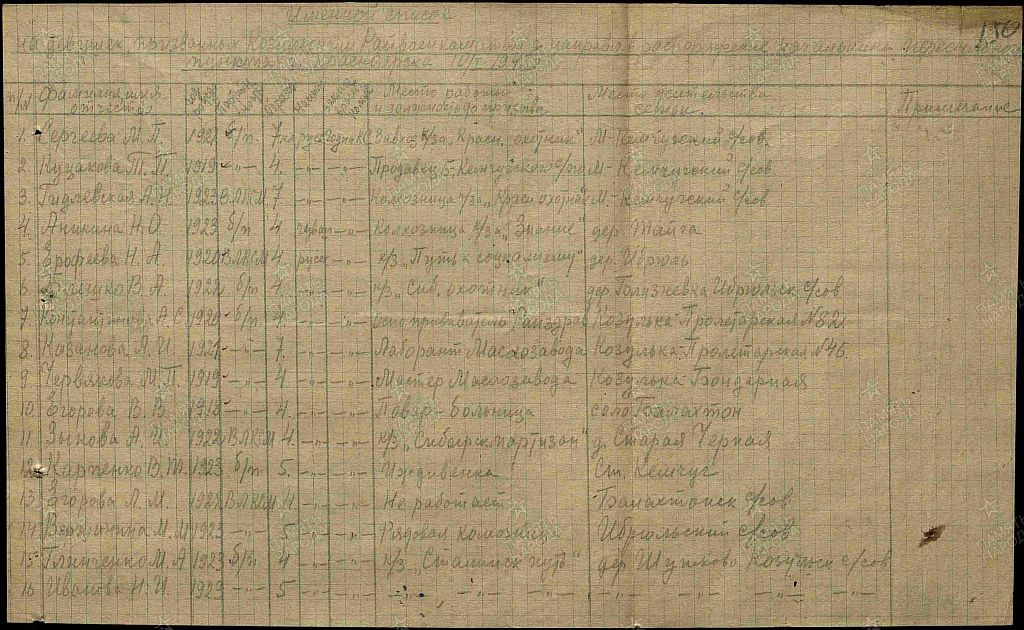 150
Именной список
на девушек, призванных Козульским Райвоенкоматом и направл. в распоряжение начальника пересыльного
пункта г. Красноярска 10/V 194
п/п Фамилия имя отчество Место работы и должность до призыва Место жительства семьи Примечание
1. Сергеева М. П. 1921 б/п. 7 русс Годна в/с Завхоз к/за „Красн. охотник" М-Кемчугский с/сов.
2. Кудакова Т. П. 1919 -„- 4. -„- -„- Продавец Б-Кемчугского с/по М-Кемчугский с/сов
3. Гидлевская А. Н. 1923 ВЛКСМ 7 -„- -„- Колхозница к/за „Красн. охотник М-Кемчугский с/сов
4. Аникина Н. О. 1923 б/п 4 чуваш -„- Колхозница к/за „Знание" дер. Тайга
5. Ерофеева Н. А. 1920 ВЛКСМ 4 русск -„- к/з „Путь к социализму" дер. Ибрюль
6 В. А. 1922 б/п 4 -„- -„- к/з „Сиб. охотник" дер Глизневка Ибрюльск с/сов
7. Константинова А. С 1920 б/п 4. -„- -„- Оспопрививатель Райздрав Козулька Пролетарская № 82
8. Казанова А. И. 1921 -„- 7. -„- -„- Лаборант Маслозавода Козулька Пролетарская № 45
9 Червякова М. П. 1919 -„- 4 -„- -„- Мастер Маслозавода Козулька Бондарная
10. Егорова В. В. 1918 -„- 4. -„- -„- Повар - Больница село Балахтон
11 Зыкова А. И. 1922 ВЛКСМ 4. -„- -„- к/з „Сибирск партизан" д. Старая Черная
12 Карпенко В. Т. 1923 б/п 5. -„- -„- Иждивенка Ст. Кемчуг
13 Егорова Л. М. 1922 ВЛКСМ 4 -„- -„- Не работает Балахтонск с/сов
14 М. И 1923 -„- 5 -„- -„- Рядовая колхозница Ибрюльский с/сов
15 Глинченко М. А 1923 б/п 4 -„- -„- к/з „Сталинск путь" дер. Шушково Козульск с/сов
16 Иванова Н. И. 1923 -„- 5 -„- -„- -„- -„- -„- -„- -„- -„-
ПАМЯТЬ НАРОДА